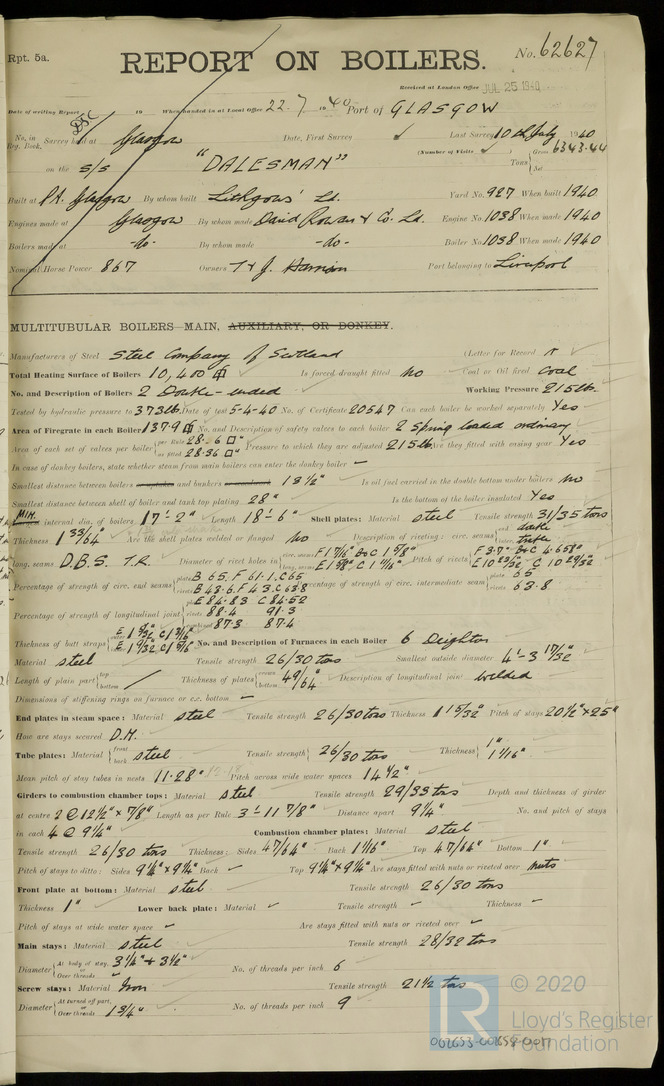 Rpt. 5a.
REPORT ON BOILERS.
No. 62627
Received at London Office JUL 25 1940
Date of writing Report 19 When handed in at Local Office 22.7.1940 Port of GLASGOW
No. in Reg. Book. Survey held at Glasgow Date, First Survey ✓ Last Survey 10th July 1940
(Number of Visits ✓) Gross 6343.44
on the S/S "DALESMAN" Tons Net
Built at Pt. Glasgow By whom built Lithgows Ld. Yard No. 927 When built 1940
Engines made at Glasgow By whom made David Rowan & Co. Ld. Engine No. 1038 When made 1940
Boilers made at -do- By whom made -do- Boiler No. 1038 When made 1940
Nominal Horse Power 867 Owners T & J. Harrison Port belonging to Liverpool
MULTITUBULAR BOILERS MAIN, AUXILIARY, OR DONKEY.
Manufacturers of Steel Steel Company of Scotland (Letter for Record
Total Heating Surface of Boilers 10,400 Is forced draught fitted No Coal or Oil fired Coal
No. and Description of Boilers 2 Double-ended Working Pressure 215 lb.
Tested by hydraulic pressure to 373 lb. Date of test 5-4-40 No. of Certificate 20547 Can each boiler be worked separately Yes
Area of Firegrate in each Boiler 137.9 No. and Description of safety valves to each boiler 2 Spring loaded ordinary
Area of each set of valves per boiler per Rule as fitted 28.36 □" Pressure to which they are adjusted 215 lb. Are they fitted with easing gear Yes
In case of donkey boilers, state whether steam from main boilers can enter the donkey boiler –
Smallest distance between boilers and bunkers 13½" Is oil fuel carried in the double bottom under boilers No
Smallest distance between shell of boiler and tank top plating 28" Is the bottom of the boiler insulated Yes
Min. internal dia. of boilers 17'-2" Length 18'-6" Shell plates: Material steel Tensile strength 31/35 tons
Thickness 1 33/64" Are the shell plates welded or flanged No Description of riveting: circ. seams end double inter. treble
long. seams D.B.S. T.R. Diameter of rivet holes in circ. seams long. seams Pitch of rivets
Percentage of strength of circ. end seams plate B 65. F 61.1. C 65 rivets B 43.6. F 43. C 63.8 Percentage of strength of circ. intermediate seam plate 65 rivets 63.8
Percentage of strength of longitudinal joint plate E 84.83 C 84.52 rivets 88.4 91.3 combined 87.3 87.4
Thickness of butt straps No. and Description of Furnaces in each Boiler 6 Deighton
Material steel Tensile strength 26/30 tons Smallest outside diameter 4'-3 17/32"
Length of plain part top bottom Thickness of plates crown bottom 49/64" Description of longitudinal joint welded
Dimensions of stiffening rings on furnace or c.c. bottom –
End plates in steam space: Material steel Tensile strength 26/30 tons Thickness 1 15/32" Pitch of stays 20½" × 25"
How are stays secured D.N.
Tube plates: Material front back steel Tensile strength 26/30 tons Thickness 1" 1 1/16"
Mean pitch of stay tubes in nests 11.28" Pitch across wide water spaces 14½"
Girders to combustion chamber tops: Material steel Tensile strength 29/33 tons Depth and thickness of girder
at centre 2 @ 12½" × 7/8" Length as per Rule 3'-11 7/8" Distance apart 9¼" No. and pitch of stays
in each 4 @ 9¼" Combustion chamber plates: Material steel
Tensile strength 26/30 tons Thickness: Sides 47/64" Back 1 1/16" Top 47/64" Bottom 1"
Pitch of stays to ditto: Sides 9¼" × 9¼" Back – Top 9¼" × 9¼" Are stays fitted with nuts or riveted over nuts
Front plate at bottom: Material steel Tensile strength 26/30 tons
Thickness 1" Lower back plate: Material ✓ Tensile strength – Thickness –
Pitch of stays at wide water space ✓ Are stays fitted with nuts or riveted over ✓
Main stays: Material steel Tensile strength 28/32 tons
Diameter At body of stay, or Over threads 3¼" & 3½" No. of threads per inch 6
Screw stays: Material Iron Tensile strength 21½ tons
Diameter At turned off part, or Over threads 1¾" No. of threads per inch 9
© 2020
Lloyd's Register
Foundation
002653-002658-0017